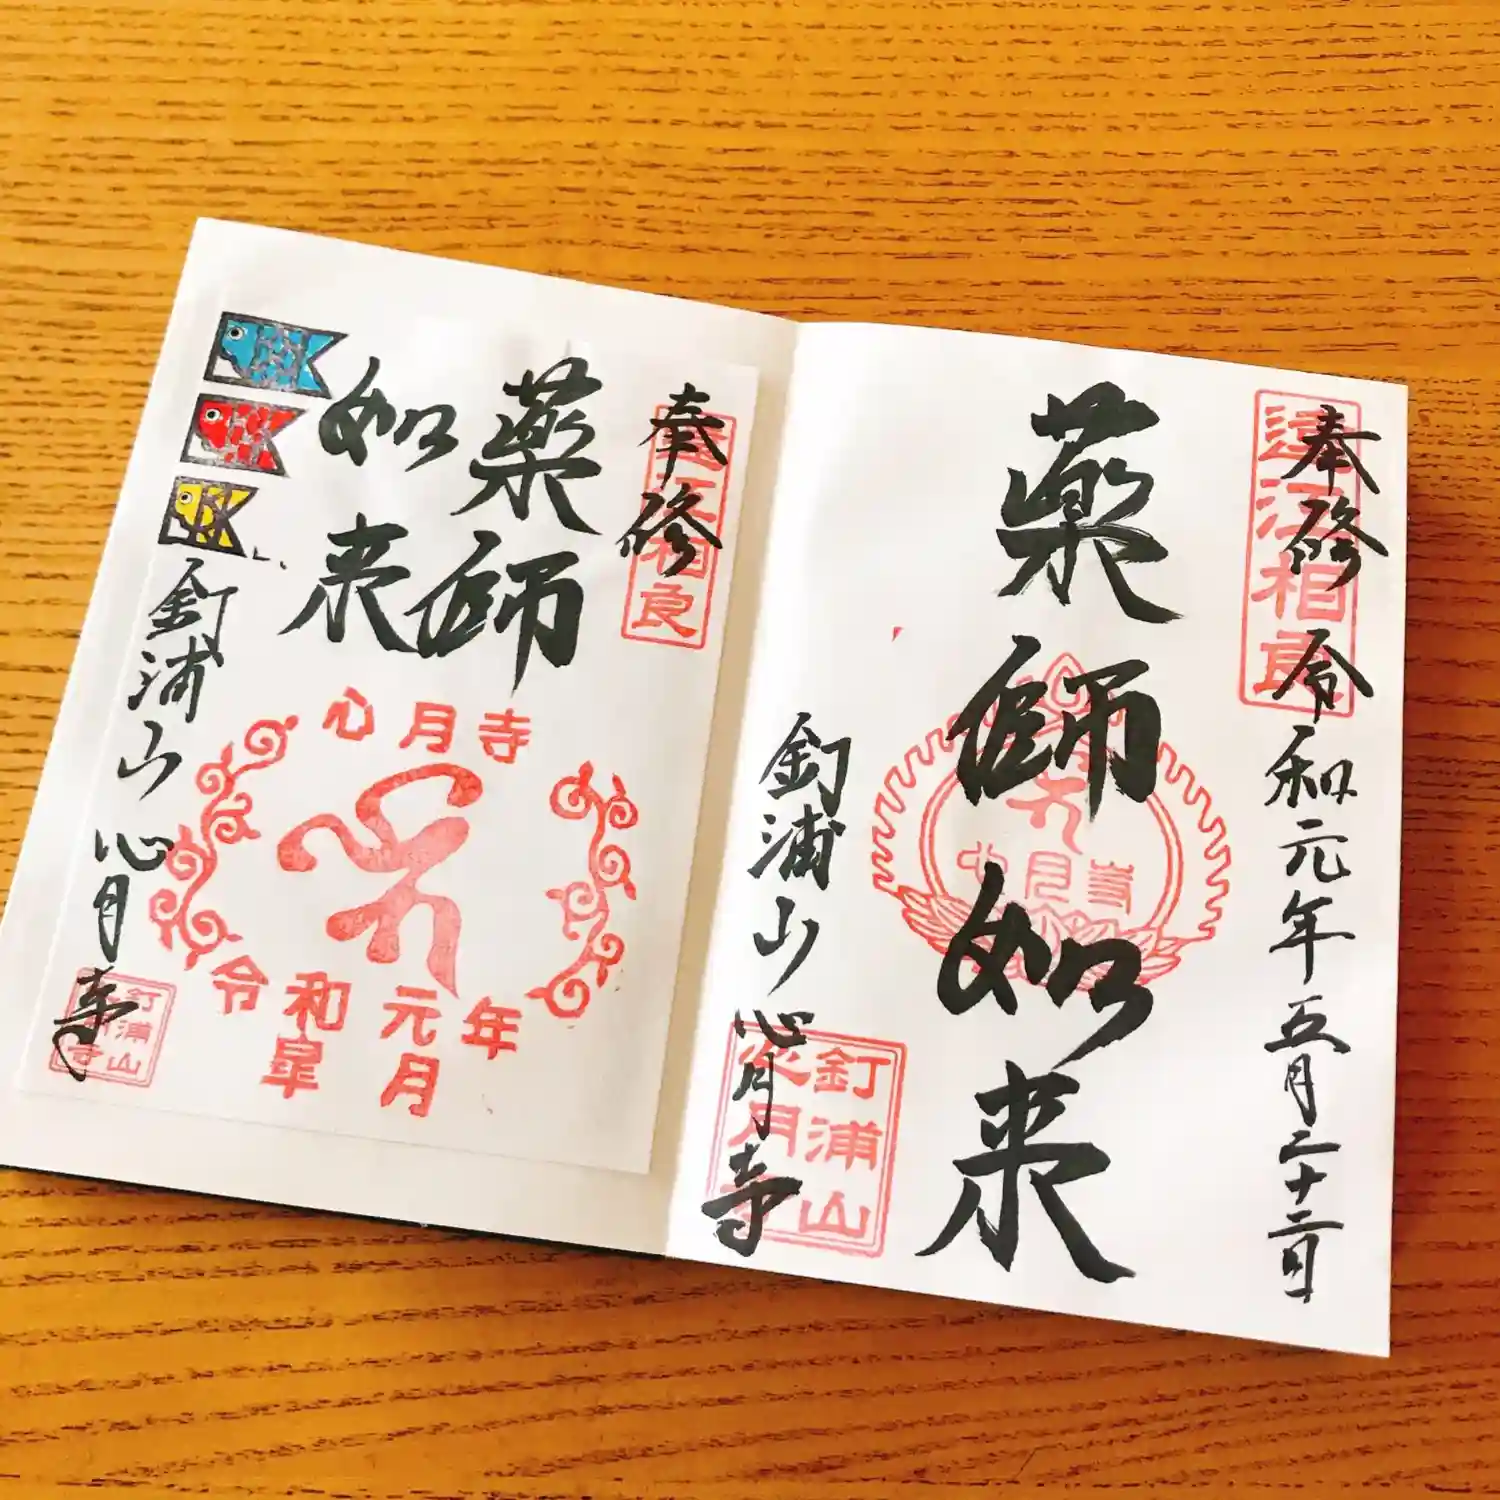 奉修 令和元年五月二十二日
遠江相良
薬師如来
心月寺
釘浦山 心月寺
釘浦山
心月寺
奉修
遠江相良
薬師
如来
釘浦山 心月寺
釘浦山
心月寺
心月寺
令和元年
皐月